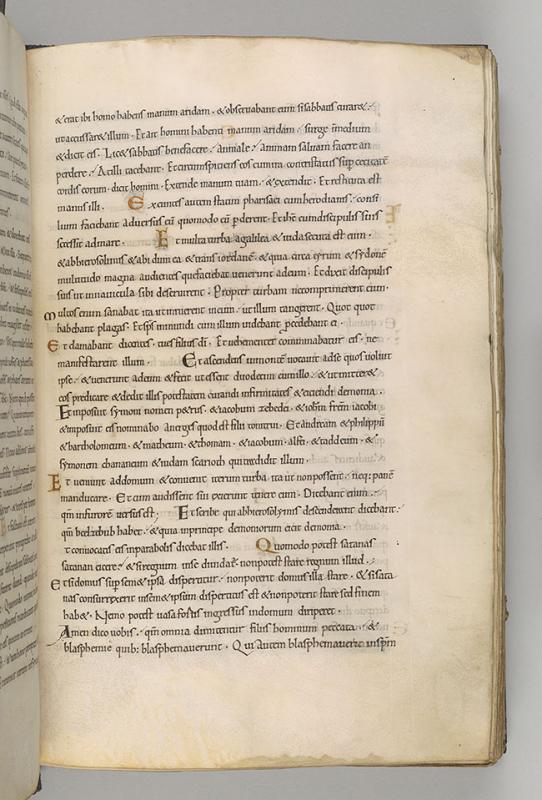 & erat ibi homo habens manum aridam. & observabant eum si sabbatis curaret
ut accusarent illum. Et ait homini habenti manum aridam. Surge in medium
& dicit eis. Licet sabbatis bene facere an male. animam salvam facere an
perdere. At illi tacebant. Et circumspiciens eos cum ira. contristatus sup cecitate
cordis eorum. dicit homini. Extende manum tuam. & extendit. Et restituta est
manus illi. Exeuntes autem statim pharisaei cum herodianis. consi
lium faciebant adversus eu quomodo eu perderent. Et ihc cum discipulis suis
secessit ad mare. Et multa turba a galilea & iudea secuta est eum.
& ab hierosolimis & ab idumea & trans iordane. & qui circa tyrum & sydone
multitudo magna audientes que faciebat venerunt ad eum. Et dixit discipulis
suis ut in navicula sibi deservirent. Propter turbam ne comprimerent eum.
Multos enim sanabat ita ut inruerent in eum. ut illum tangerent. Quot quot
habebant plagas. Et sps inmundi cum illum videbant. procedebant ei.
Et clamabant dicentes. tu es filius di. Et vehementer comminabatur eis. ne
manifestarent illum. Et ascendens in monte vocavit ad se quos voluit
ipse. & venerunt ad eum & fecit ut essent duodecim cum illo. & ut mitteret
eos predicare & dedit illis potestatem curandi infirmitates & eiciendi demonia.
Et imposuit symoni nomen petrus. & iacobum zebedei. & iohm frem iacobi
& imposuit eis nomina boanerges quod est filii tonitrui. Et andream & philippu
& bartholomeum. & matheum. & thomam. & iacobum alfei. & taddeum. &
symonem chananeum & iudam scarioth qui tradidit illum.
Et veniunt ad domum. & convenit iterum turba. ita ut non possent. neq: pane
manducare. Et cum audissent sui exierunt tenere eum. Dicebant enim.
qm in furore versus est. Et scribe qui ab hierosolymis descenderant dicebant.
qm beelzebub habet. & quia in principe demoniorum eicit demonia.
t convocatis eis in parabolis dicebat illis. Quomodo potest satanas
satanan eicere. & si regnum in se dividat. non potest stare regnum illud.
Et si domus sup semet ipsa dispertiatur. non poterit domus illa stare. & si sata
nas consurrexerit in semet ipsum dispertitus est & non poterit stare sed finem
habet. Nemo potest vasa fortis ingressus in domum diripere.
Amen dico vobis. qm omnia dimittentur filiis hominum peccata. &
blasphemie quib: blasphemaverunt. Qui autem blasphemaverit in spm